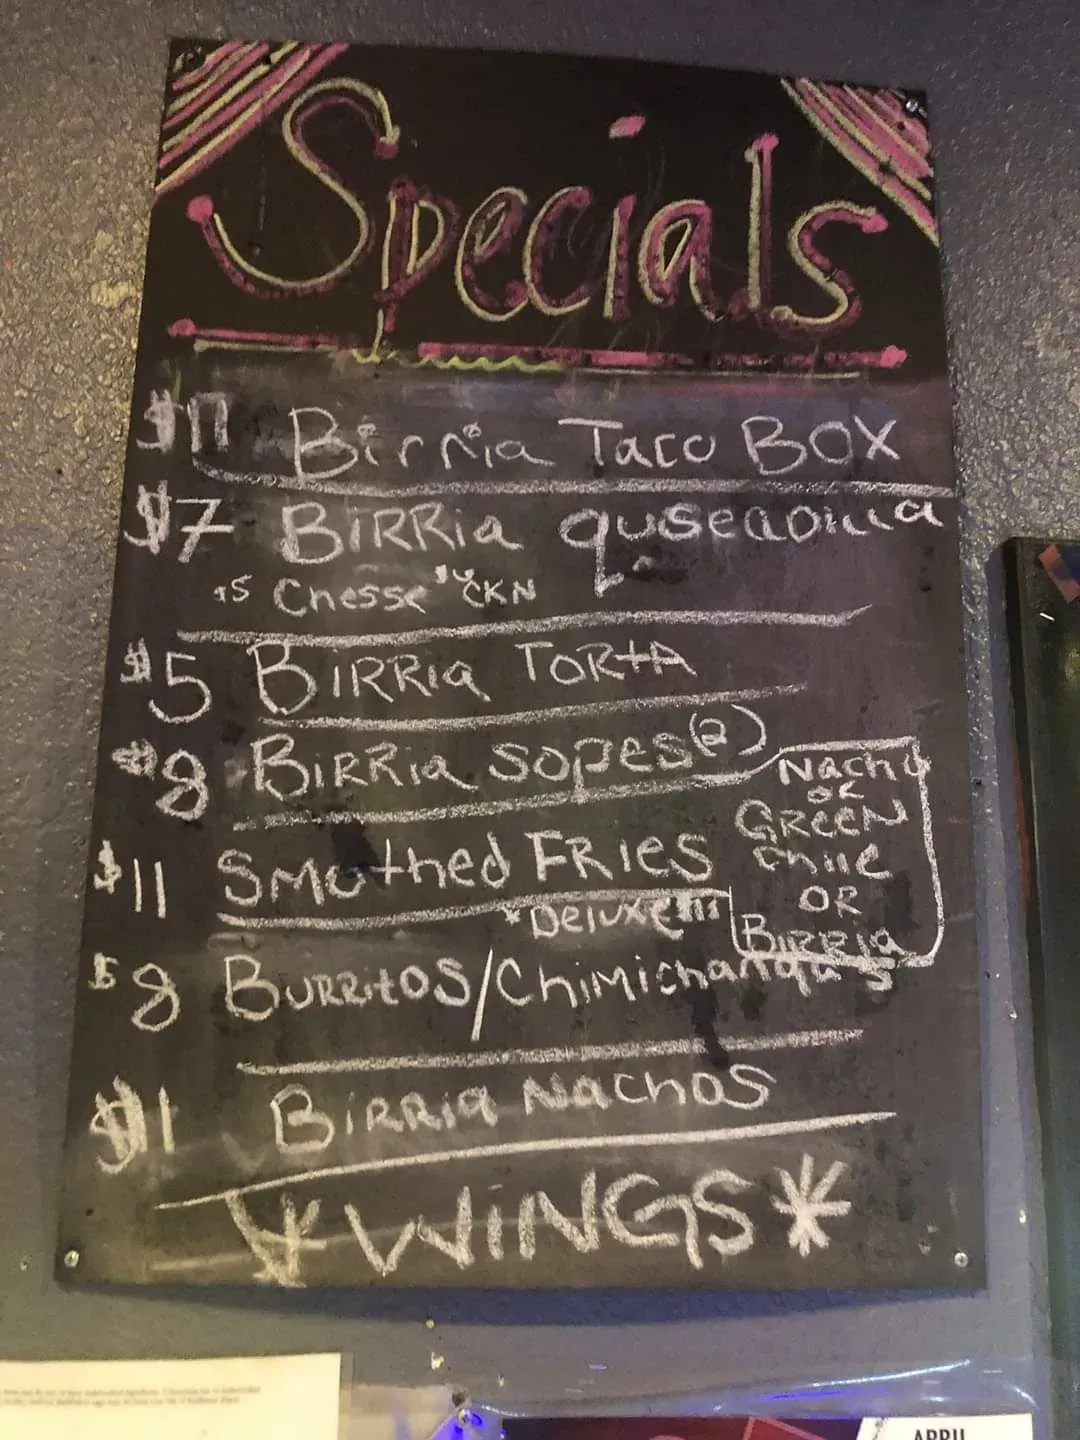 Specials
$17 Birria Taco BOX
$7 BiRRia quseadilla
.5 Chesse $6 CKN
$5 BIRRia TORtA
$8 BIRRia sopes (2)
$11 SMothed FRies
Nacho
or
GReeN
chile
OR
BIRRIA
*Deluxe
$8 BURRitOS/Chimichangas
$11 BIRRia Nachos
*WiNGS*
APRIL